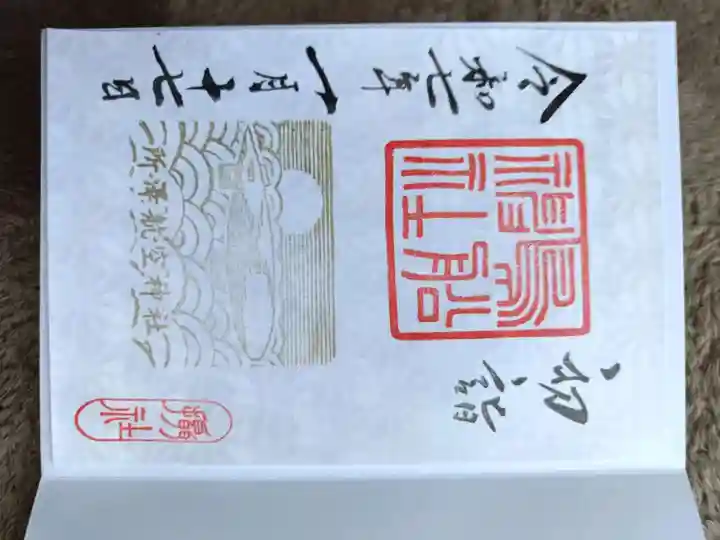 令和七年一月十七日
鳥船神社
初詣
所澤航空神社